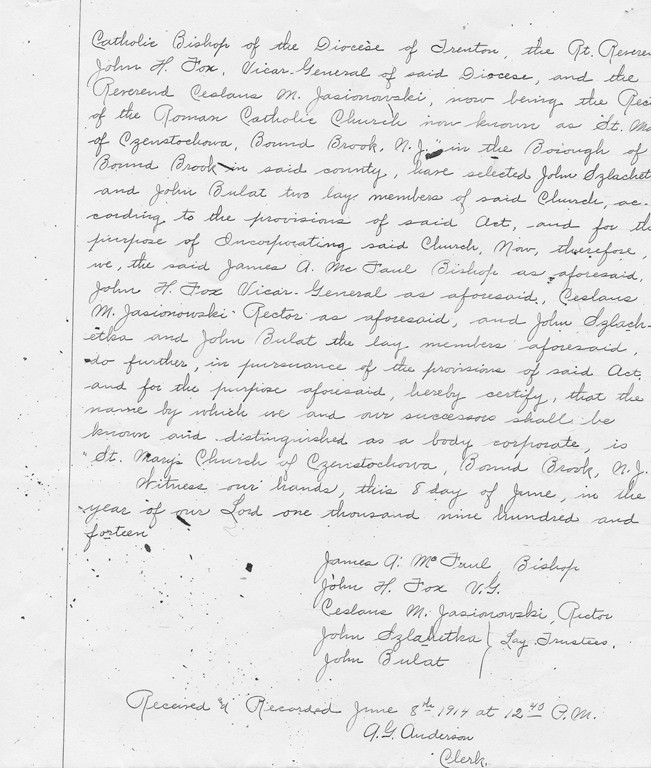 Catholic Bishop of the Diocese of Trenton, the Rt. Reveren
John H. Fox, Vicar-General of said Diocese, and the
Reverend Ceslaus M. Jasionowski, now being the Rect
of the Roman Catholic Church now known as St. Ma
of Czenstochowa, Bound Brook, N.J." in the Borough of
Bound Brook in said county, have selected John Szlachet
and John Bulat two lay members of said Church, ac-
cording to the provisions of said Act, and for the
purpose of Incorporating said Church, Now, therefore,
we, the said James A. Mc Faul Bishop as aforesaid,
John H. Fox Vicar-General as aforesaid, Ceslaus
M. Jasionowski Rector as aforesaid, and John Szlach-
etka and John Bulat the lay members aforesaid,
do further, in pursuance of the provisions of said Act,
and for the purpose aforesaid, hereby certify, that the
name by which we and our successors shall be
known and distinguished as a body corporate, is
"St. Marys Church of Czenstochowa, Bound Brook, N.J.
Witness our hands, this 8 day of June, in the
year of our Lord one thousand nine hundred and
forteen
James A. Mc Faul, Bishop
John H. Fox V.G.
Ceslaus M. Jasionowski, Rector
John Szlahetka } Lay Trustees.
John Bulat
Received & Recorded June 8th 1914 at 12 40 P.M.
A.G. Anderson
Clerk.